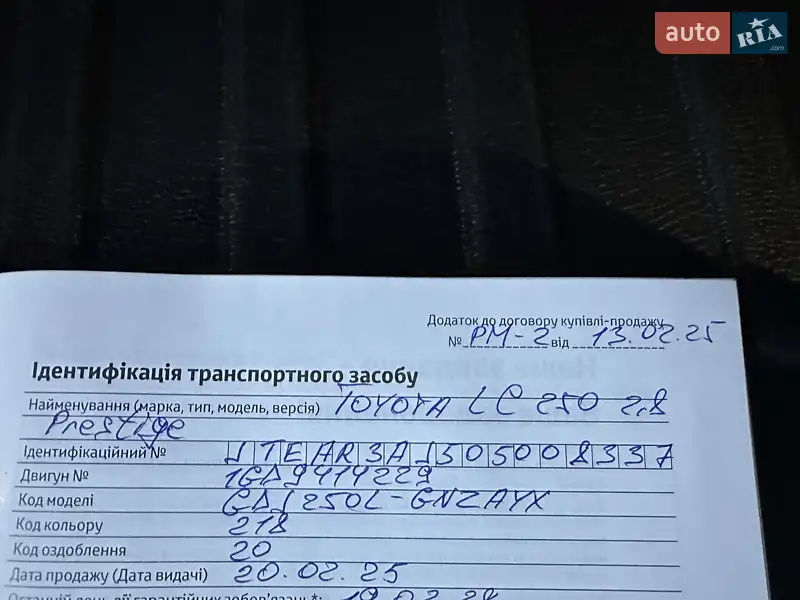 auto RIA .com
Додаток до договору купівлі-продажу
№ PM-2 від 13.02.25
Ідентифікація транспортного засобу
Найменування (марка, тип, модель, версія) TOYOTA LC 250 2,8
Prestige
Ідентифікаційний № JTEAR3AJ505008337
Двигун № 1GD9414229
Код моделі GDJ250L-GNZAYX
Код кольору 218
Код оздоблення 20
Дата продажу (Дата видачі) 20.02.25